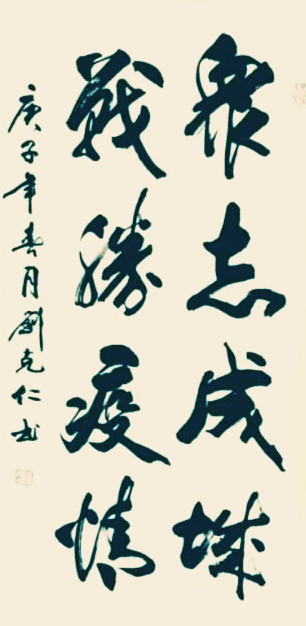 眾志成城
戰勝疫情
庚子年春月劉克仁书